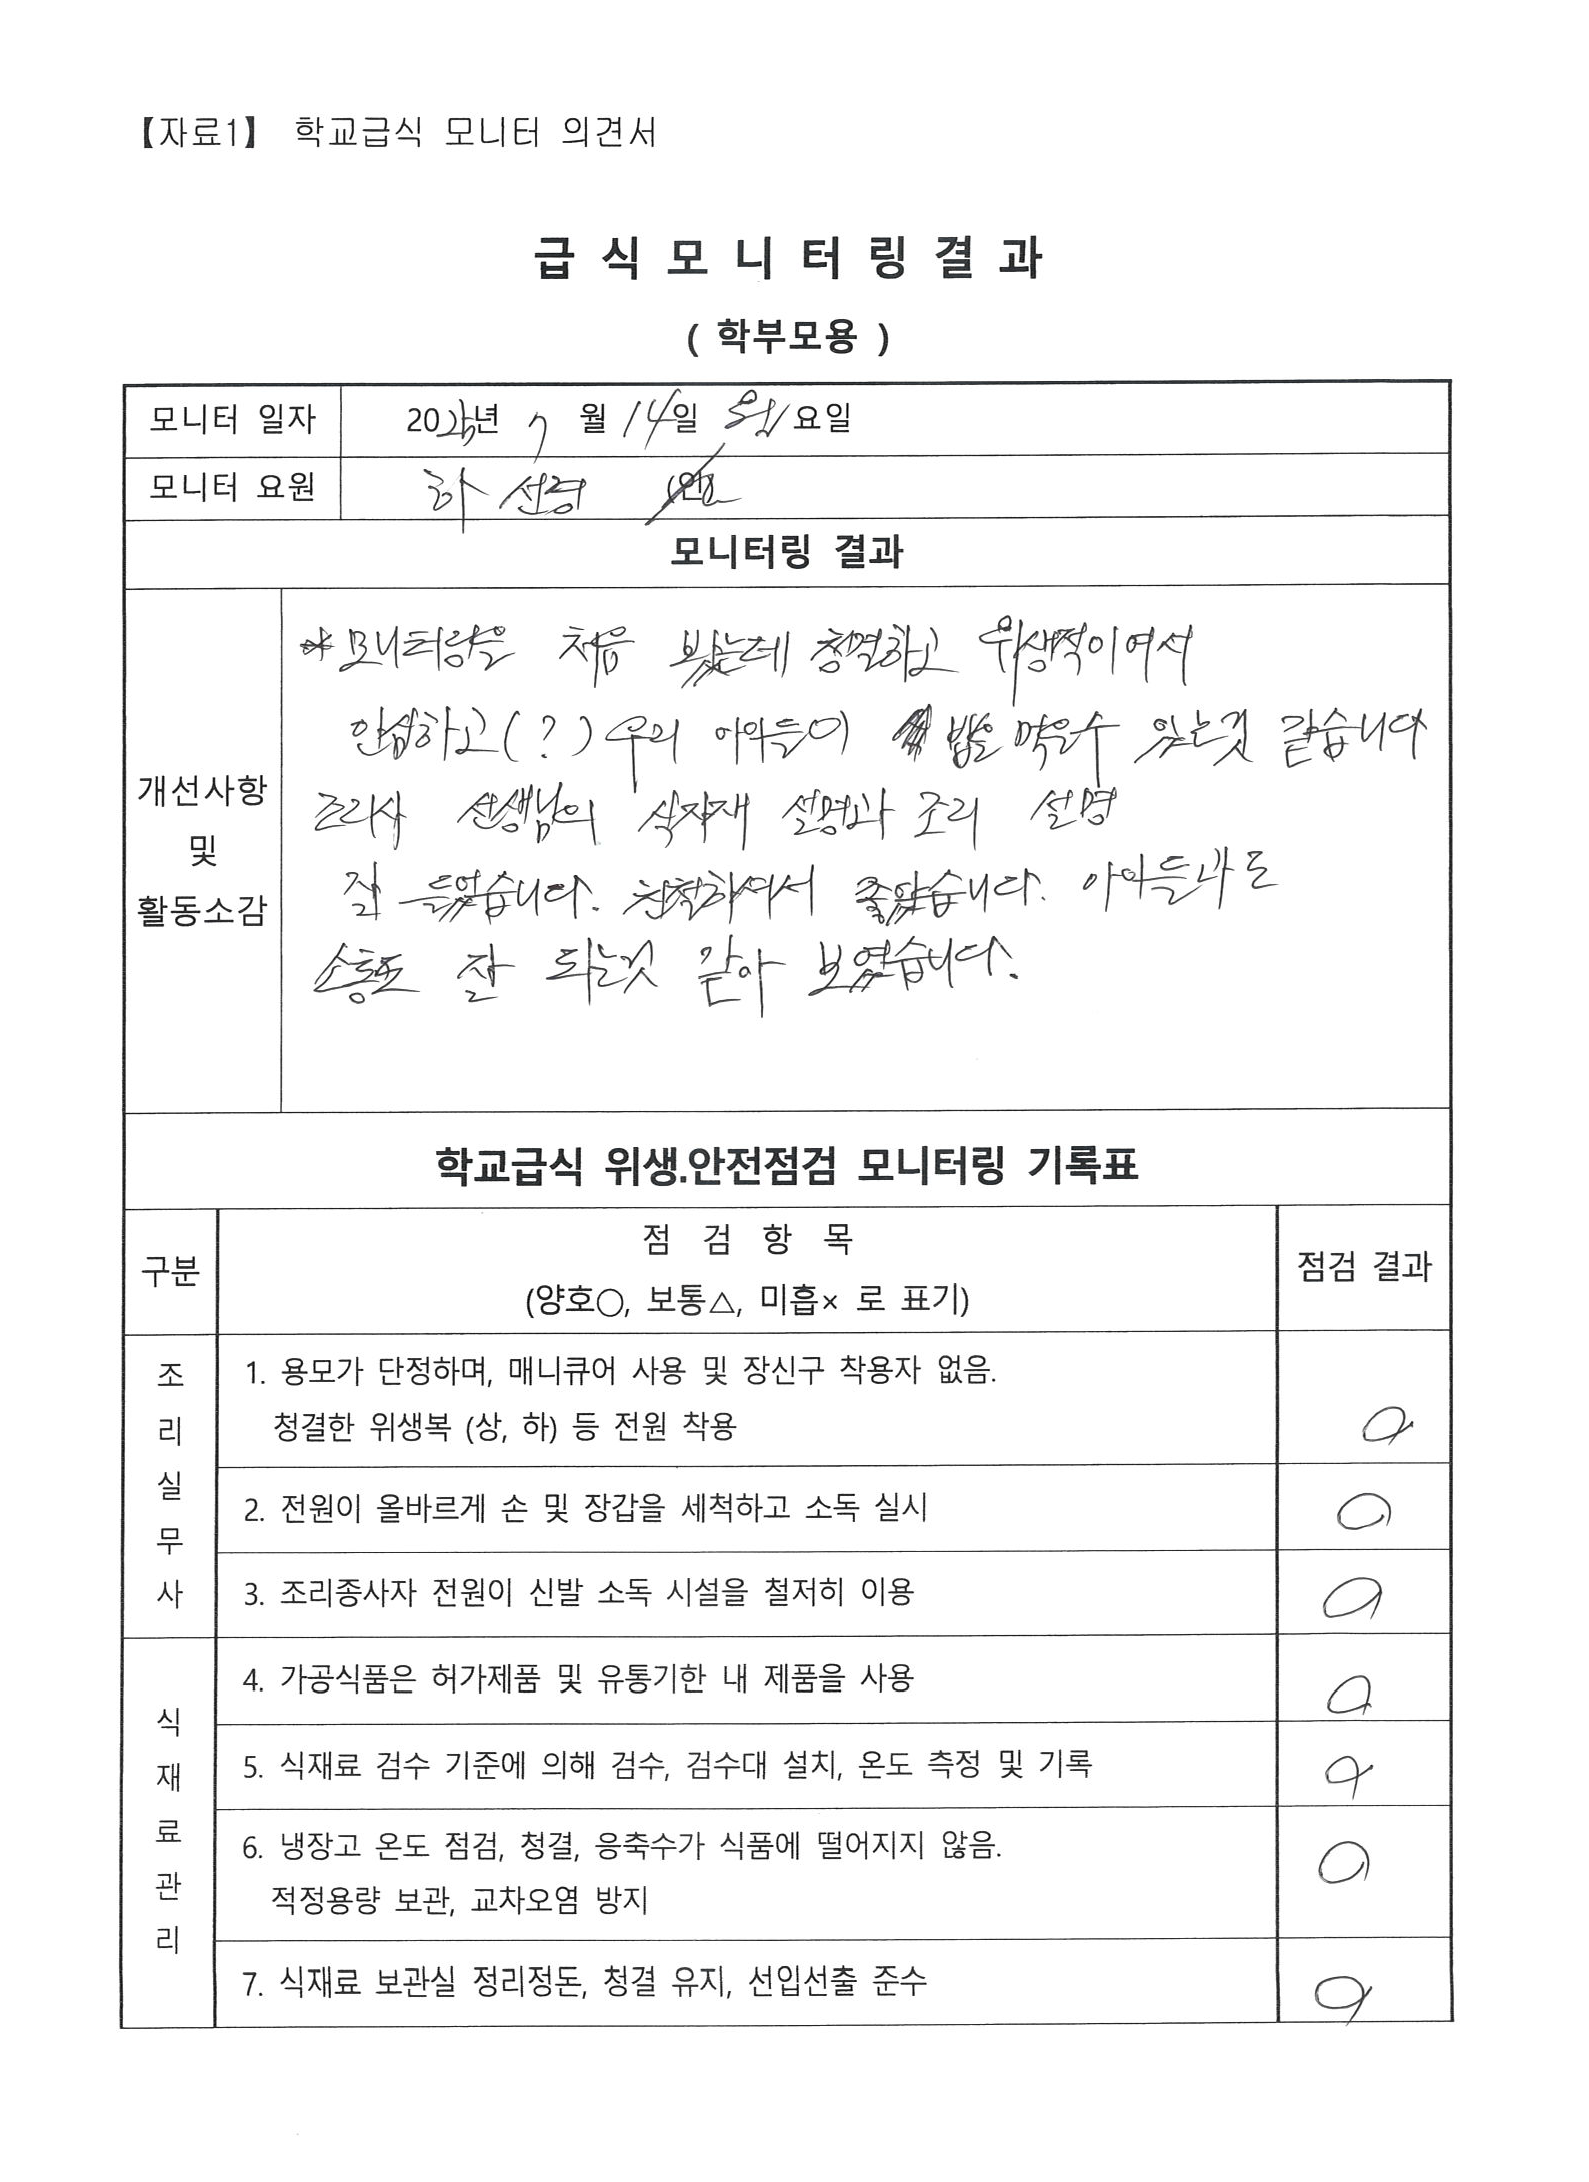 【자료1】 학교급식 모니터 의견서
급 식 모 니 터 링 결 과
( 학부모용 )
모니터 일자 2025년 7 월 14일 월 요일
모니터 요원 하 선령 (인)
모니터링 결과
개선사항
및
활동소감
*모니터링을 처음 봤는데 청결하고 위생적이여서
안심하고(?) 우리 아이들이 밥을 먹을수 있는것 같습니다
조리사 선생님의 식자재 설명과 조리 설명
잘 들었습니다. 친절하셔서 좋았습니다. 아이들과도
소통도 잘 되는것 같아 보였습니다.
학교급식 위생.안전점검 모니터링 기록표
구분
점 검 항 목
(양호○, 보통△, 미흡× 로 표기)
점검 결과
조리실무사
1. 용모가 단정하며, 매니큐어 사용 및 장신구 착용자 없음.
청결한 위생복 (상, 하) 등 전원 착용 ○
2. 전원이 올바르게 손 및 장갑을 세척하고 소독 실시 ○
3. 조리종사자 전원이 신발 소독 시설을 철저히 이용 ○
식재료관리
4. 가공식품은 허가제품 및 유통기한 내 제품을 사용 ○
5. 식재료 검수 기준에 의해 검수, 검수대 설치, 온도 측정 및 기록 ○
6. 냉장고 온도 점검, 청결, 응축수가 식품에 떨어지지 않음.
적정용량 보관, 교차오염 방지 ○
7. 식재료 보관실 정리정돈, 청결 유지, 선입선출 준수 ○